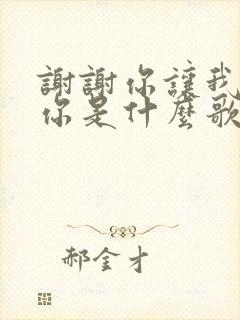 謝謝你讓我
你是什麼歌
郝金才